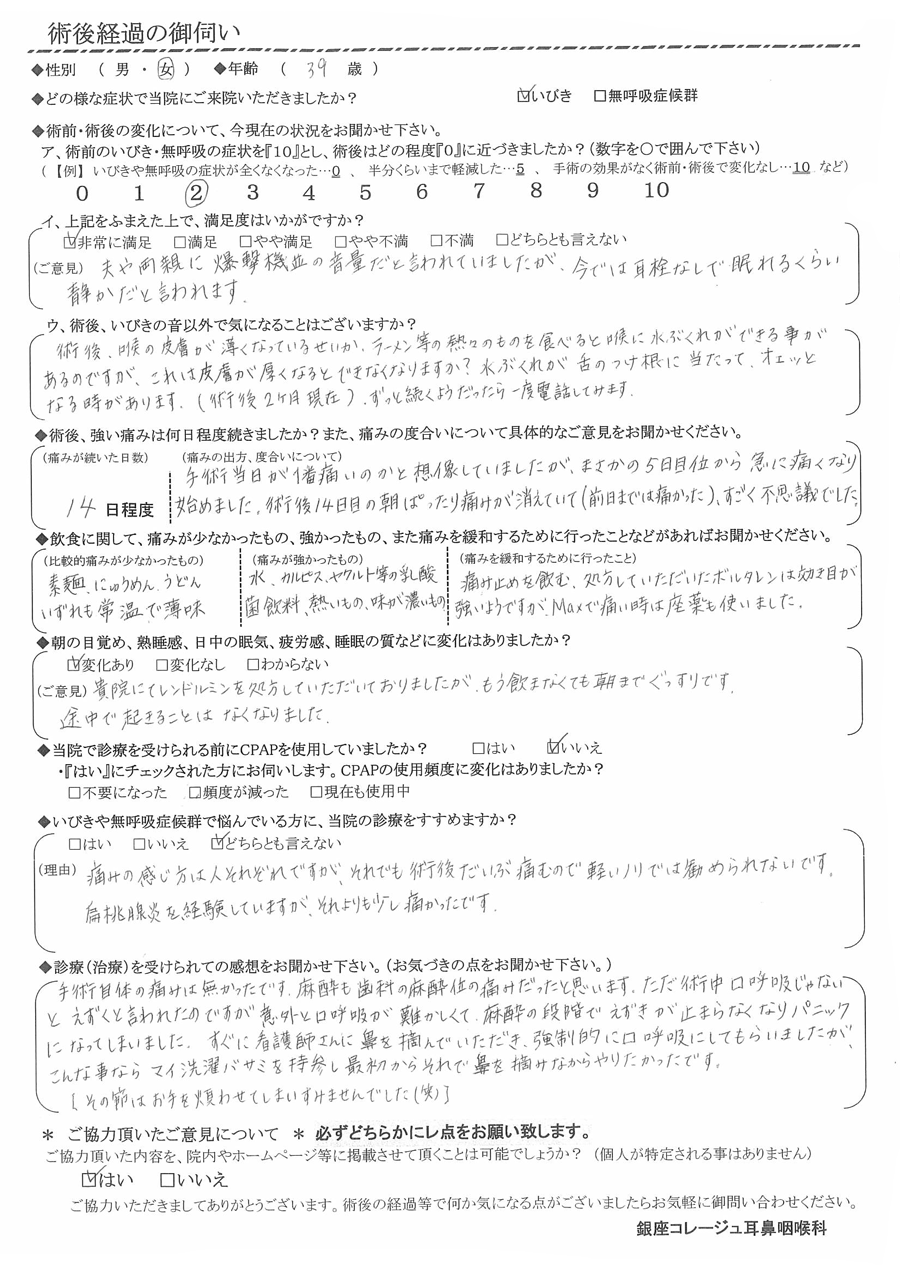 術後経過の御伺い
◆性別 ( 男 ・ 女 ) ◆年齢 ( 39 歳 )
◆どの様な症状で当院にご来院いただきましたか? ☑いびき □無呼吸症候群
◆術前・術後の変化について、今現在の状況をお聞かせ下さい。
ア、術前のいびき・無呼吸の症状を『10』とし、術後はどの程度『0』に近づきましたか?(数字を○で囲んで下さい)
(【例】いびきや無呼吸の症状が全くなくなった…0 、 半分くらいまで軽減した…5 、 手術の効果がなく術前・術後で変化なし…10 など)
0 1 2 3 4 5 6 7 8 9 10
イ、上記をふまえた上で、満足度はいかがですか?
☑非常に満足 □満足 □やや満足 □やや不満 □不満 □どちらとも言えない
(ご意見) 夫や両親に爆撃機並の音量だと言われていましたが、今では耳栓なしで眠れるくらい
静かだと言われます。
ウ、術後、いびきの音以外で気になることはございますか?
術後、喉の皮膚が薄くなっているせいか、ラーメン等の熱々のものを食べると喉に水ぶくれができる事が
あるのですが、これは皮膚が厚くなるとできなくなりますか?水ぶくれが舌のつけ根に当たって、オエッと
なる時があります。(術後2ヶ月現在)。ずっと続くようだったら一度電話してみます。
◆術後、強い痛みは何日程度続きましたか?また、痛みの度合いについて具体的なご意見をお聞かせください。
(痛みが続いた日数) (痛みの出方、度合いについて)
手術当日が1番痛いのかと想像していましたが、まさかの5日目位から急に痛くなり
14 日程度 始めました。術後14日目の朝ぱったり痛みが消えていて(前日までは痛かった)、すごく不思議でした。
◆飲食に関して、痛みが少なかったもの、強かったもの、また痛みを緩和するために行ったことなどがあればお聞かせください。
(比較的痛みが少なかったもの) (痛みが強かったもの) (痛みを緩和するために行ったこと)
素麺、にゅうめん、うどん 水、カルピス、ヤクルト等の乳酸 痛み止めを飲む、処方していただいたボルタレンは効き目が
いずれも常温で薄味 菌飲料、熱いもの、味が濃いもの 強いようですが、Maxで痛い時は座薬も使いました。
◆朝の目覚め、熟睡感、日中の眠気、疲労感、睡眠の質などに変化はありましたか?
☑変化あり □変化なし □わからない
(ご意見) 貴院にてレンドルミンを処方していただいておりましたが、もう飲まなくても朝までぐっすりです。
途中で起きることはなくなりました。
◆当院で診療を受けられる前にCPAPを使用していましたか? □はい ☑いいえ
・『はい』にチェックされた方にお伺いします。CPAPの使用頻度に変化はありましたか?
□不要になった □頻度が減った □現在も使用中
◆いびきや無呼吸症候群で悩んでいる方に、当院の診療をすすめますか?
□はい □いいえ ☑どちらとも言えない
(理由) 痛みの感じ方は人それぞれですが、それでも術後だいぶ痛むので軽いノリでは勧められないです。
扁桃腺炎を経験していますが、それよりも少し痛かったです。
◆診療(治療)を受けられての感想をお聞かせ下さい。(お気づきの点をお聞かせ下さい。)
手術自体の痛みは無かったです。麻酔も歯科の麻酔位の痛みだったと思います。ただ術中口呼吸じゃない
と えずくと言われたのですが意外と口呼吸が難かしくて、麻酔の段階でえずきが止まらなくなりパニック
になってしまいました。すぐに看護師さんに鼻を摘んでいただき、強制的に口呼吸にしてもらいましたが、
こんな事なら マイ洗濯バサミを持参し最初からそれで鼻を摘みながらやりたかったです。
[その節はお手を煩わせてしまいすみませんでした(笑)]
＊ ご協力頂いたご意見について ＊ 必ずどちらかにレ点をお願い致します。
ご協力頂いた内容を、院内やホームページ等に掲載させて頂くことは可能でしょうか? (個人が特定される事はありません)
☑はい □いいえ
ご協力いただきましてありがとうございます。術後の経過等で何か気になる点がございましたらお気軽に御問い合わせください。
銀座コレージュ耳鼻咽喉科